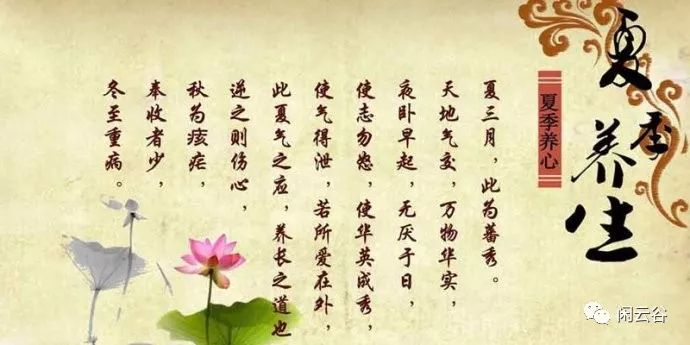 夏季养生
夏季养心
夏三月，此为蕃秀。
天地气交，万物华实，
夜卧早起，无厌于日，
使志勿怒，使华英成秀，
使气得泄，若所爱在外，
此夏气之应，养长之道也
逆之则伤心，
秋为痎疟，
奉收者少，
冬至重病。
闲云谷